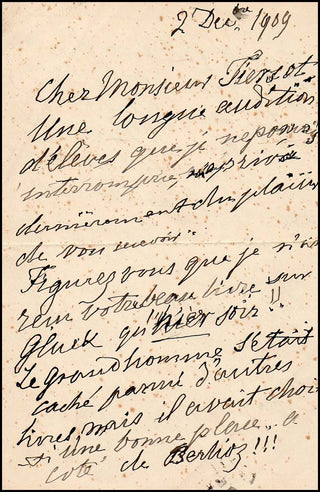 2 Dec.bre 1909
Cher Monsieur Tiersot
Une longue audition
d'élèves que je ne pouvais
interrompre, m'a privé
dernièrement du plaisir
de vous recevoir.
Figurez vous que je n'ai
reçu votre beau livre sur
Gluck qu'hier soir!!!
Le grand homme s'était
caché parmi d'autres
livres, mais il avait choi
si une bonne place.. a
coté de Berlioz!!!